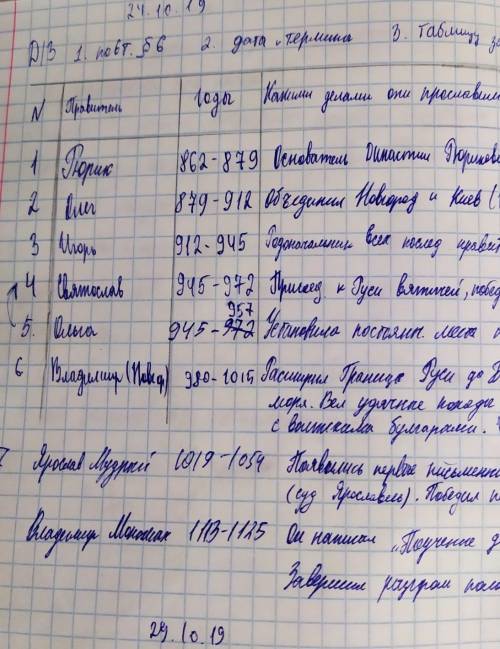 24.10.19
Д/З 1. повт. §6 2. дата и термина 3. Таблицу
N Правитель Годы Какими делами они прославились
1 Рюрик 862-879 Основатель династии Рюрикови
2 Олег 879-912 Объединил Новгород и Киев
3 Игорь 912-945 Родоначальник всех послед правит
4 Святослав 945-972 Присоед. к Руси вятичей, побед
957
5. Ольга 945-972 Установила постоянн. места
6 Владимир 980-1015 Расширил Границы Руси до
моря. Вел удачные походы
с волжскими булгарами.
7 Ярослав Мудрый 1019-1054 Появились первые письменн
(суд Ярославль). Победил
Владимир Мономах 1113-1125 Он написал „Поучение д
Завершил разгром поло
29.10.19